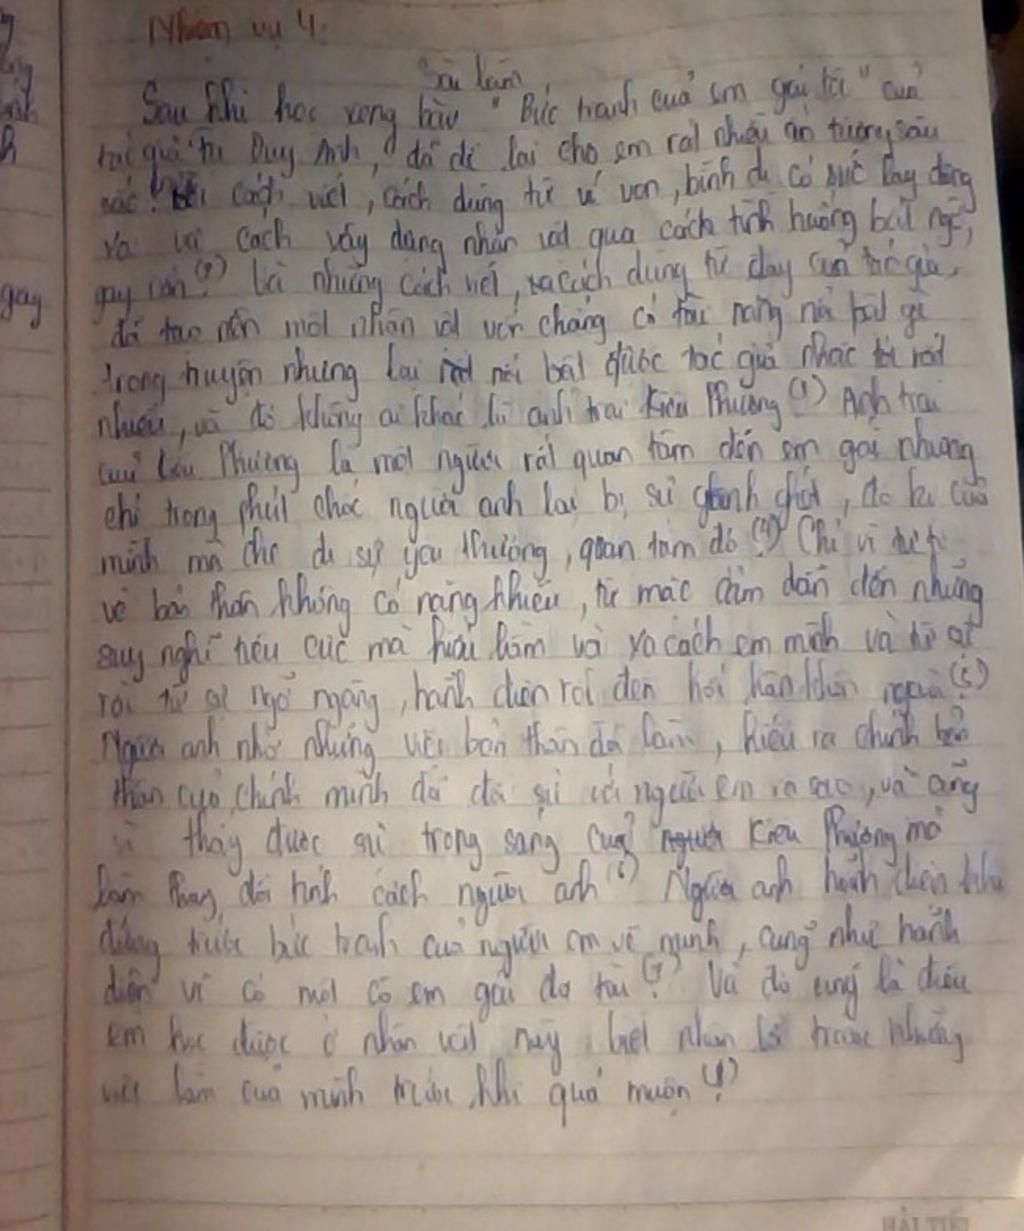 Nhiệm vụ 4:
Bài làm
Sau khi học xong bài "Bức tranh của em gái tôi" của
tác giả Tạ Duy Anh, đã để lại cho em rất nhiều ấn tượng sâu
sắc! cách viết, cách dùng từ ví von, bình dị có sức lay động
và cách xây dựng nhân vật qua cách tình huống bất ngờ,
gay cấn (2) Là những cách viết, và cách dùng từ đấy của tác giả,
đã tạo nên một nhân vật vốn chẳng có tài năng nổi bật gì
trong truyện nhưng lại nổi bật được tác giả nhắc tới rất
nhiều, và đó không ai khác là anh trai Kiều Phương (3) Anh trai
của Kiều Phương là một người rất quan tâm đến em gái nhưng
chỉ trong phút chốc người anh lại bị sự ganh ghét, đố kị của
mình mà che đi sự yêu thương, quan tâm đó (4) Chỉ vì tự ti
về bản thân không có năng khiếu, từ mặc cảm dẫn đến những
suy nghĩ tiêu cực mà hiểu lầm và xa cách em mình và từ sự
rồi từ sự ngỡ ngàng, hãnh diện rồi đến hối hận khôn nguôi (5)
Người anh nhờ những việc bản thân đã làm, hiểu ra chính bản
thân của chính mình đã đối sử với người em ra sao, và cũng
vì thấy được sự trong sáng của Kiều Phương mà
làm thay đổi tính cách người anh (6) Người anh hãnh diện khi
đứng trước bức tranh của người em vẽ mình, cũng như hãnh
diện vì có một cô em gái đa tài (7) Và đó cũng là điều
em học được ở nhân vật này, biết nhận lỗi trước những
việc làm của mình trước khi quá muộn (8)